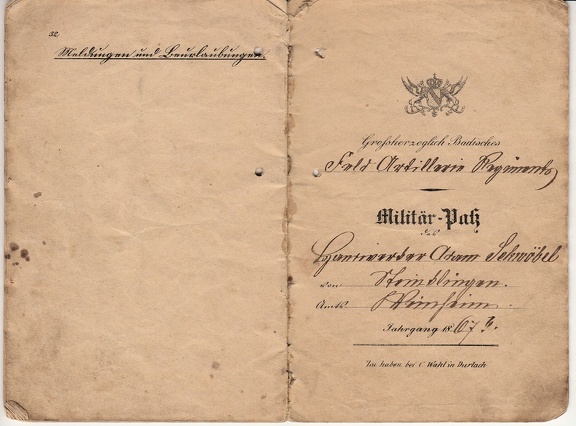 32
Meldungen und Beurlaubungen.
Großherzoglich Badisches
Feld Artillerie Regiments
Militär-Paß
des
Adam Schwöbel
von Steinklingen.
Amts Weinheim.
Jahrgang 1867
Zu haben bei C Wahl in Durlach